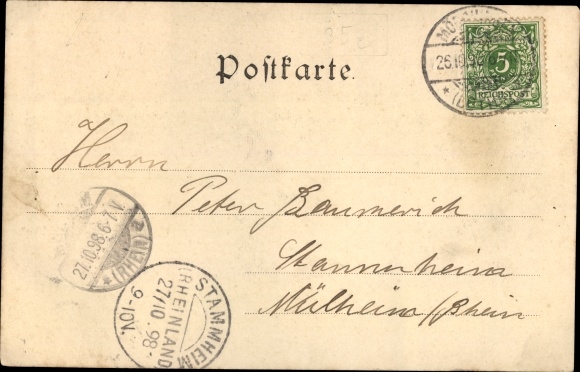 35
Postkarte.
26.10.98
5
REICHSPOST
Herrn
Peter Baumerich
Stammheim
Mülheim/Rhein
27.10.98.6-7 V.
(RHEIN) a
STAMMHEIM
(RHEINLAND)
27/10.98.
9-10V.